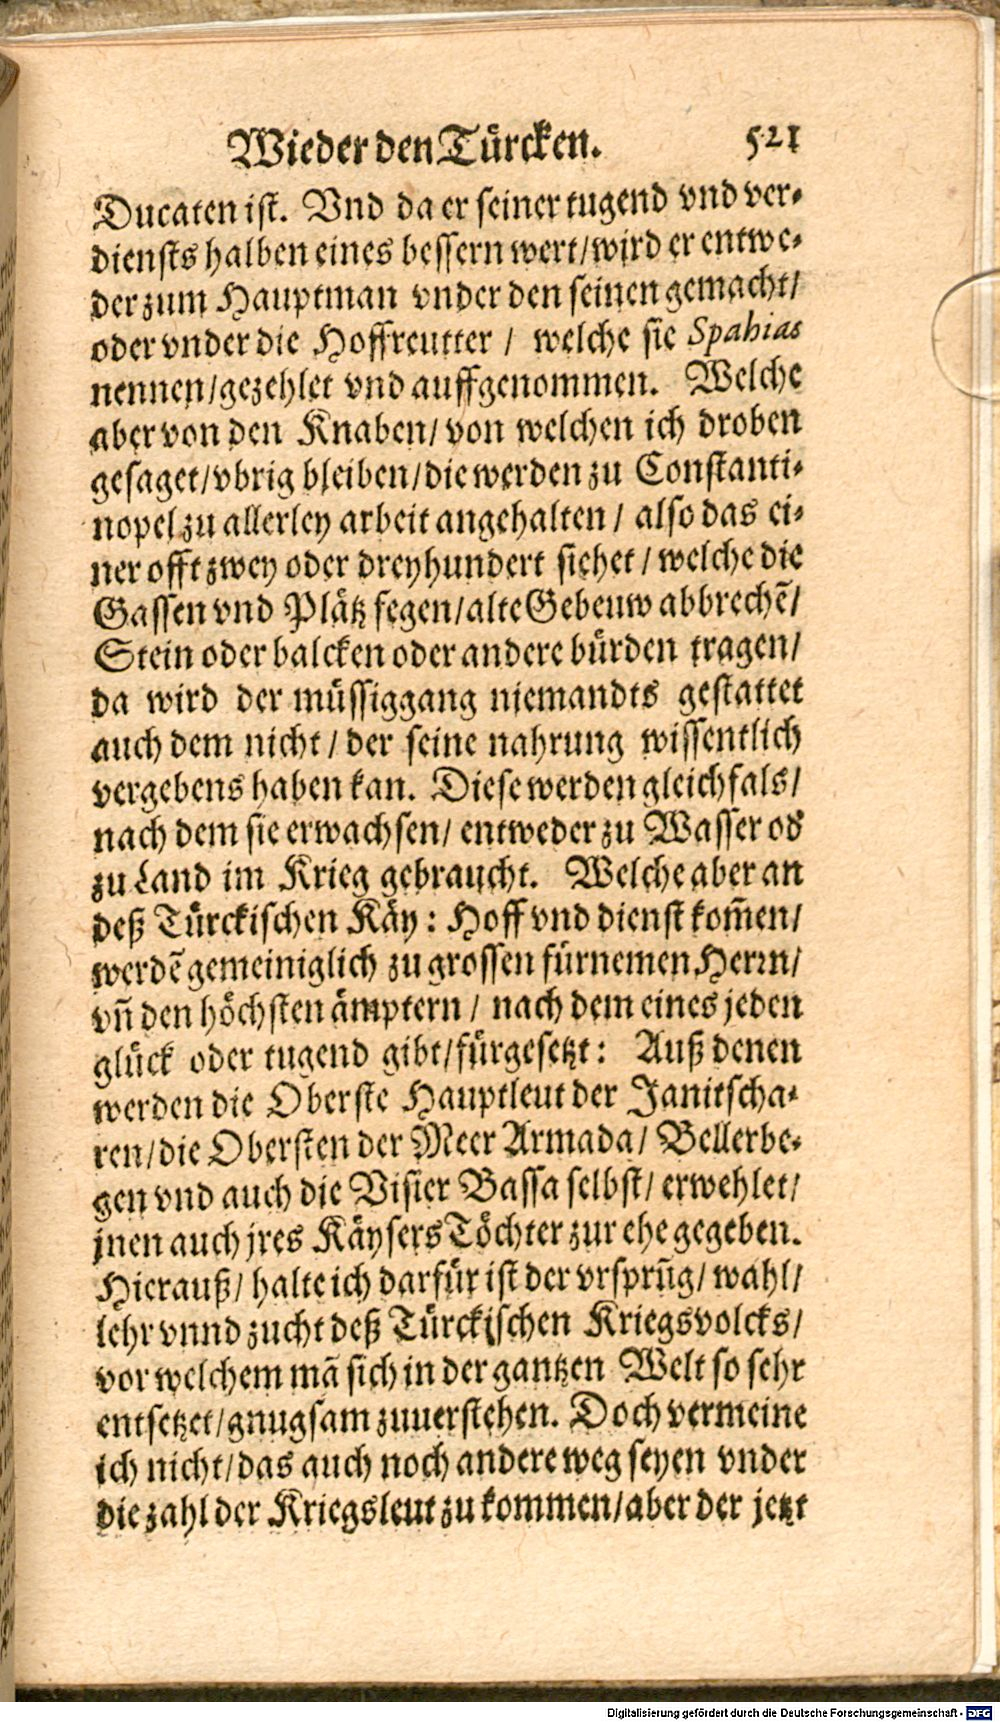 Wieder den Türcken. 521
Ducaten ist. Vnd da er seiner tugend vnd ver-
diensts halben eines bessern wert/wird er entwe-
der zum Hauptman vnder den seinen gemacht/
oder vnder die Hoffreutter / welche sie Spahias
nennen/gezehlet vnd auffgenommen. Welche
aber von den Knaben/von welchen ich droben
gesaget/vbrig bleiben/die werden zu Constanti-
nopel zu allerley arbeit angehalten / also das ei-
ner offt zwey oder dreyhundert siehet / welche die
Gassen vnd Plätz fegen/alte Gebeuw abbrechē/
Stein oder balcken oder andere bürden tragen/
da wird der müssiggang niemandts gestattet
auch dem nicht / der seine nahrung wissentlich
vergebens haben kan. Diese werden gleichfals/
nach dem sie erwachsen/ entweder zu Wasser od
zu Land im Krieg gebraucht. Welche aber an
deß Türckischen Käy: Hoff vnd dienst kom̄en/
werdē gemeiniglich zu grossen fürnemen Herrn/
vn̄ den höchsten ämptern / nach dem eines jeden
glück oder tugend gibt/fürgesetzt: Auß denen
werden die Oberste Hauptleut der Janitscha-
ren/die Obersten der Meer Armada/ Bellerbe-
gen vnd auch die Visier Bassa selbst/ erwehlet/
jnen auch jres Käysers Töchter zur ehe gegeben.
Hierauß/ halte ich darfür ist der vrsprūg/ wahl/
lehr vnnd zucht deß Türckischen Kriegsvolcks/
vor welchem mā sich in der gantzen Welt so sehr
entsetzet/gnugsam zuuerstehen. Doch vermeine
ich nicht/das auch noch andere weg seyen vnder
die zahl der Kriegsleut zu kommen/aber der jetzt
Digitalisierung gefördert durch die Deutsche Forschungsgemeinschaft - DFG